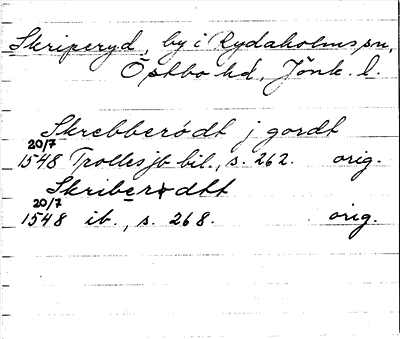 Skriperyd, by i Rydaholms sn,
Östbo hd, Jönk. l.
Skrebberödt j gordt
20/7
1548 Trolles jb bil., s. 262. orig.
Skriberödtt
20/7
1548 ib., s. 268. orig.